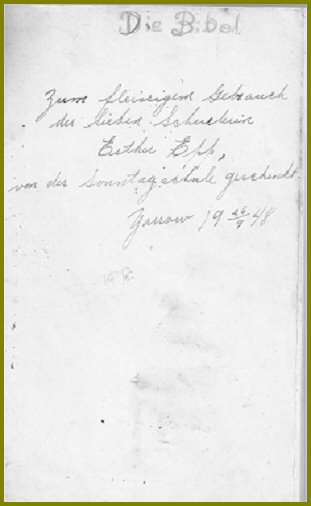 Die Bibel
Zum fleissigem Gebrauch
der lieben Schuelerin
Esther Epp,
von der Sonntagschule geschenkt.
Yarrow 19 26/9 48